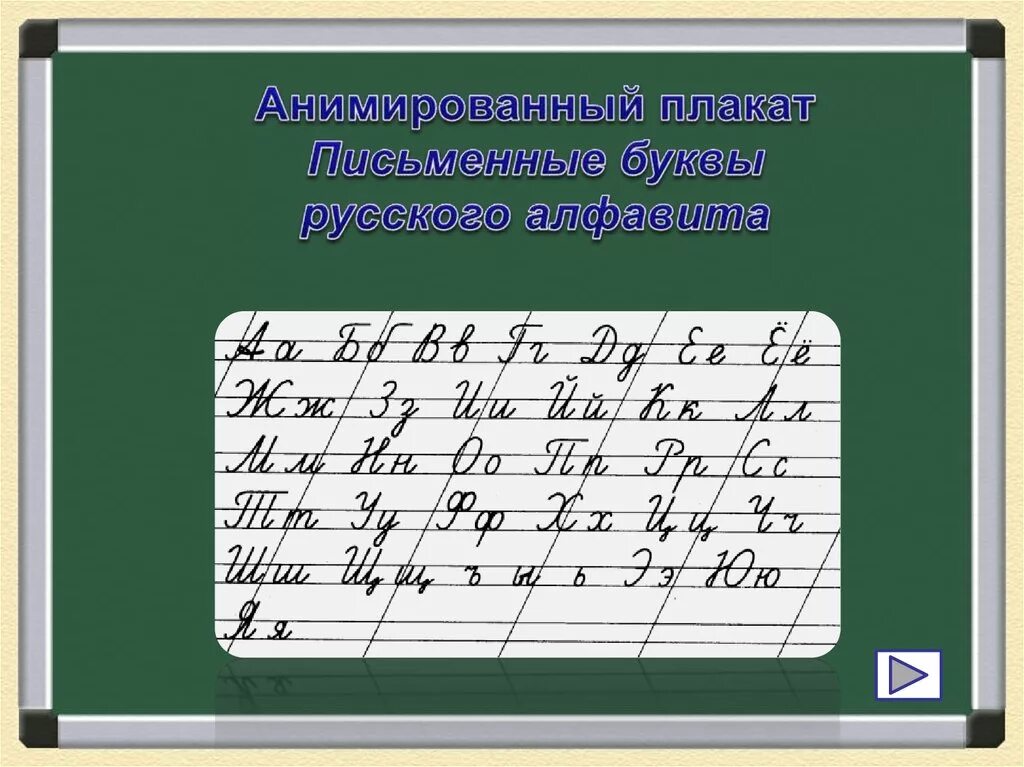 Анимированный плакат
Письменные буквы
русского алфавита
Аа Бб Вв Гг Дд Ее Ёё
Жж Зз Ии Йй Кк Лл
Мм Нн Оо Пп Рр Сс
Тт Уу Фф Хх Цц Чч
Шш Щщ ъ ы ь Ээ Юю
Яя